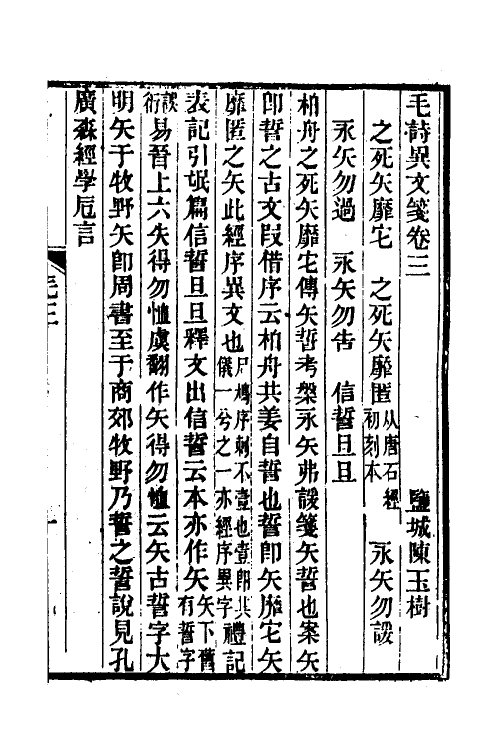 毛詩異文箋卷三　鹽城陳玉樹
之死矢靡宅　之死矢靡匿從唐石經初刻本　永矢勿諼
永矢勿過　永矢勿告　信誓旦旦
柏舟之死矢靡宅傳矢誓考槃永矢弗諼箋矢誓也案矢
卽誓之古文叚借序云柏舟共姜自誓也誓卽矢靡宅矢
靡匿之矢此經序異文也尸鳩序刺不壹也壹卽其儀一兮之一亦經序異字禮記
表記引氓篇信誓旦旦釋文出信誓云本亦作矢矢下舊有誓字
誤衍易晉上六失得勿恤虞翻作矢得勿恤云矢古誓字大
明矢于牧野矢卽周書至于商郊牧野乃誓之誓說見孔
廣森經學卮言